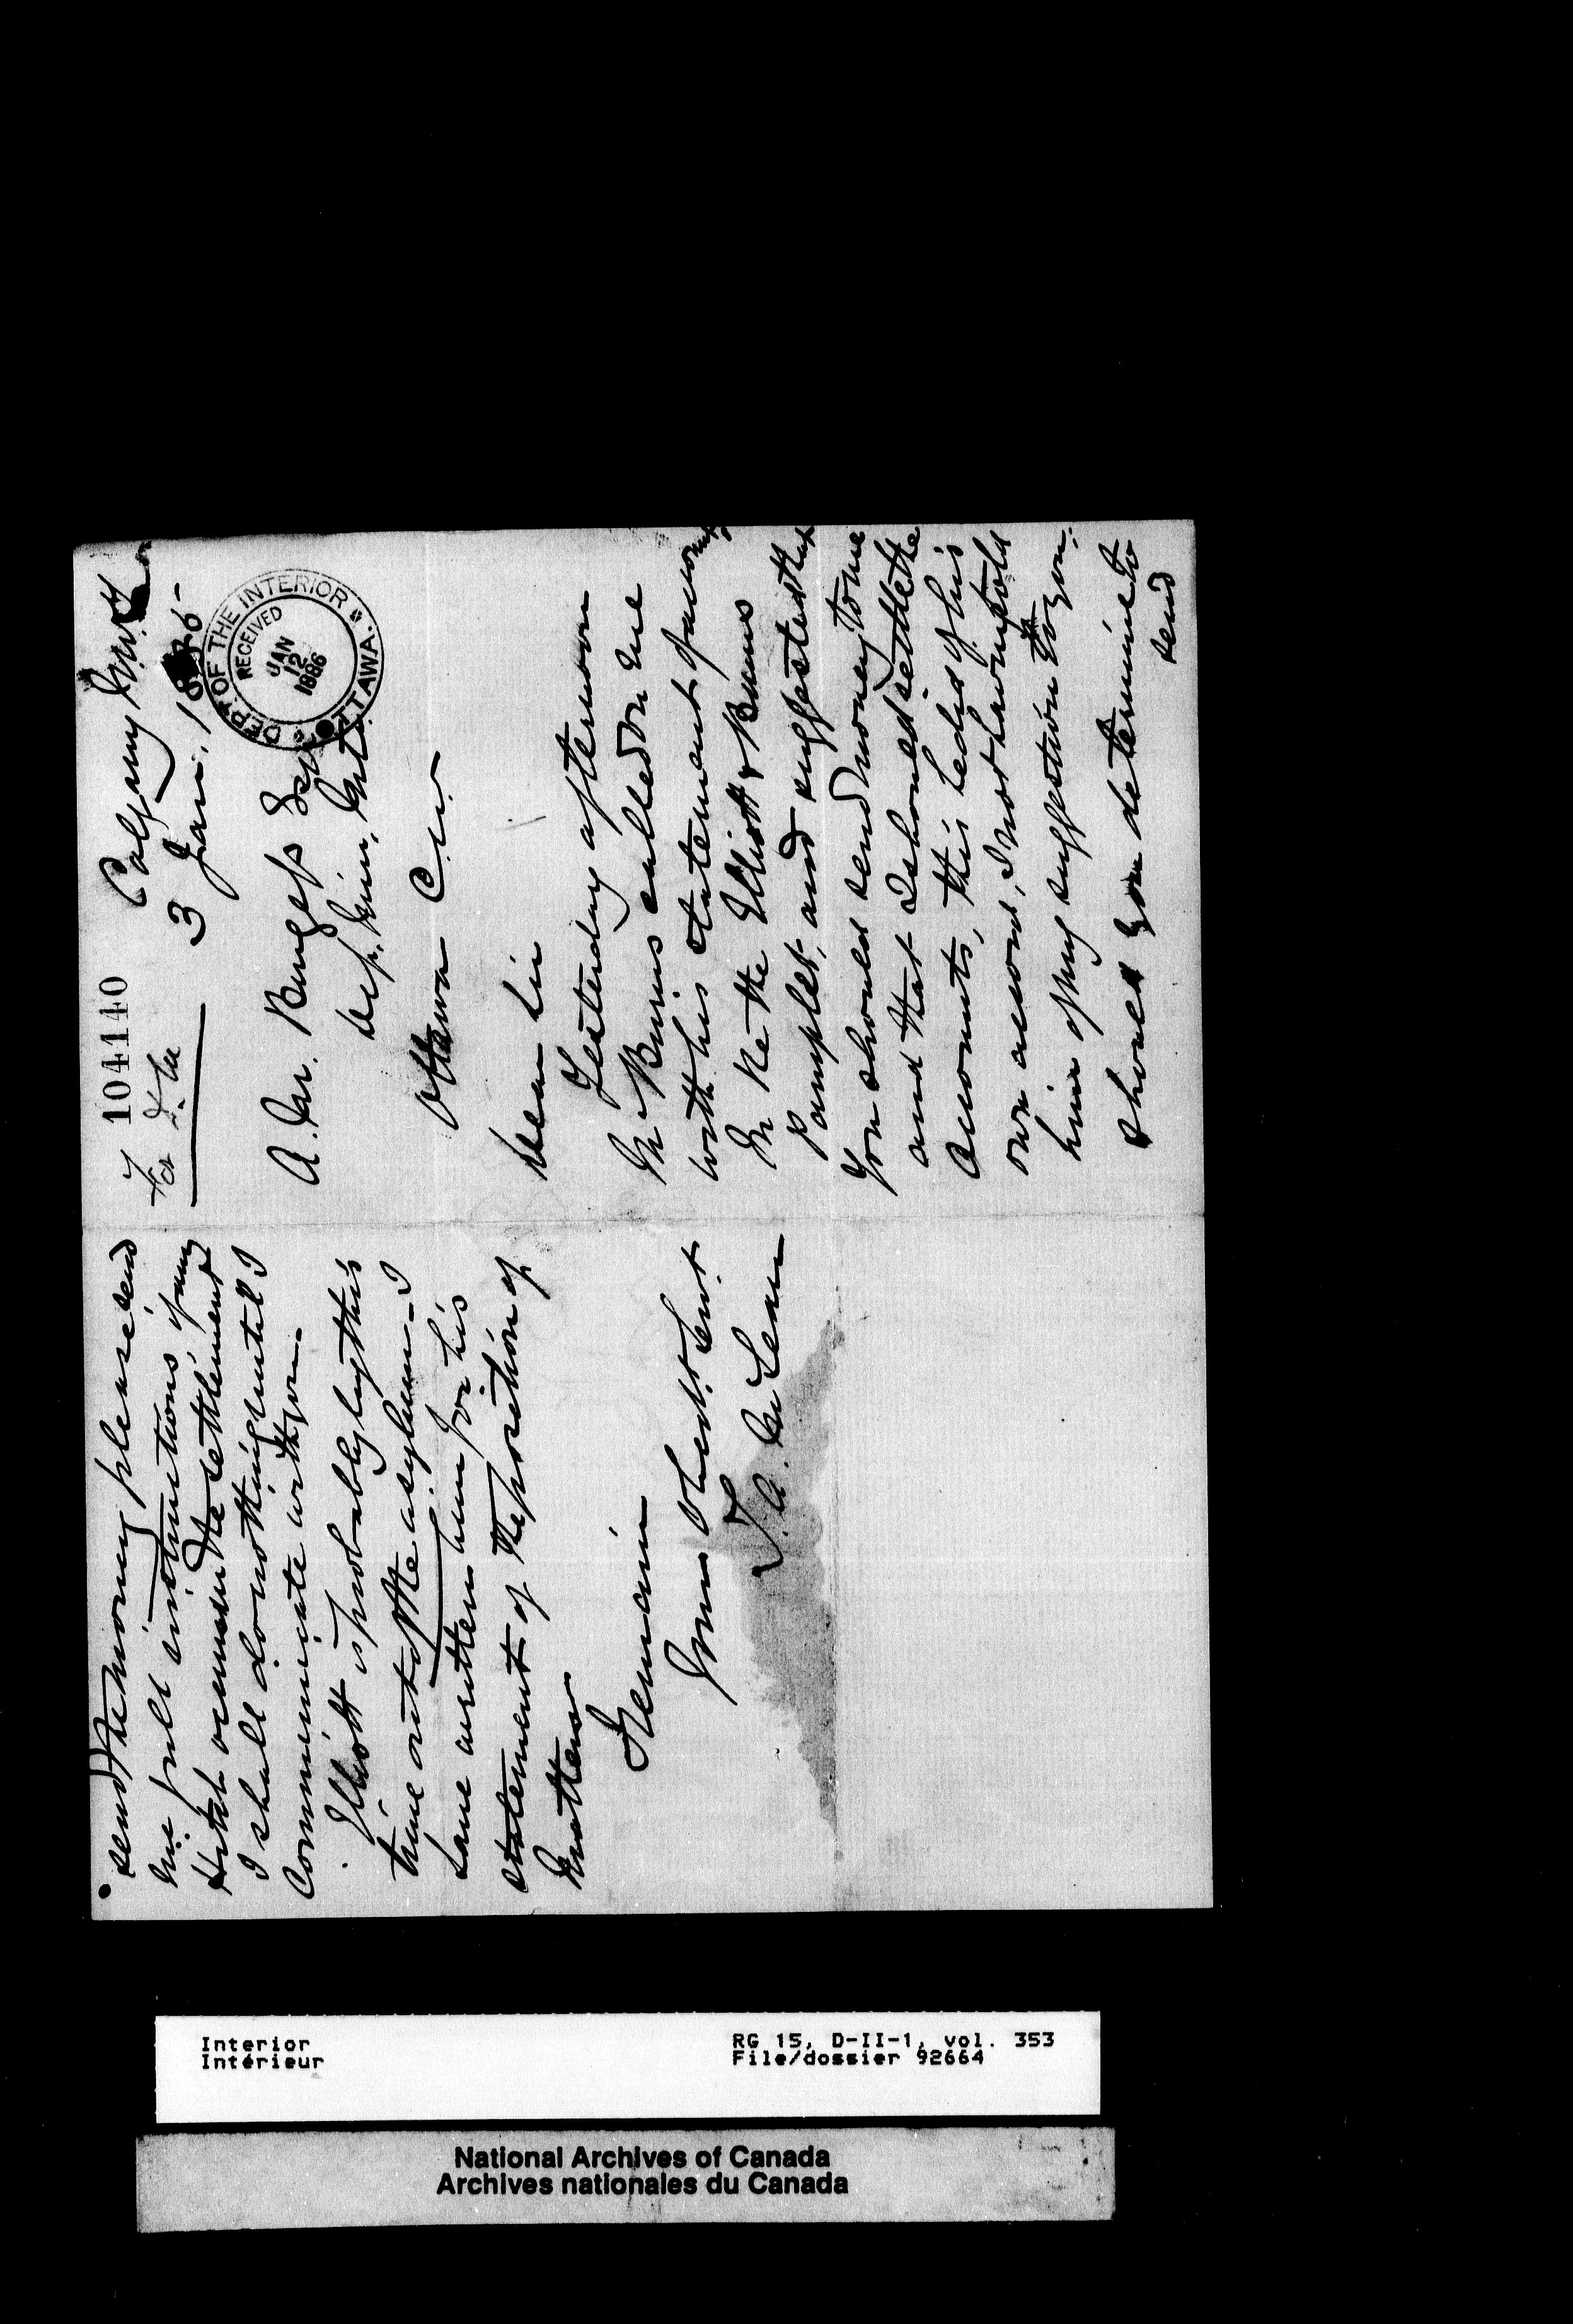 104140
Calgary N.W.T
3 Jany. 1885
DEPT OF THE INTERIOR
OTTAWA.
RECEIVED
JAN
12
1886
A. M. Burgess Esq
Dep. Min. Int.
Ottawa
Dear Sir
Yesterday afternoon
Mr Burns called on me
with his statement of accounts
In Re the Elliott & Burns
Pamplet, and suggested that
you should send money to me
and that I should settle the
accounts, this he did of his
own accord, I not having told
him of my suggestion to you.
Should you determine to
send
send the money please send
me full instructions of any
that occur in the settlement
I shall do nothing until I
Communicate with you.
Elliott is probably by this
time out of the asylum - I
have written him for his
statement of the position of
Matters
Remain
Your Obedt. Servt.
J. A. McLean
Interior
Intérieur
RG 15, D-II-1, vol. 353
File/dossier 92664
National Archives of Canada
Archives nationales du Canada